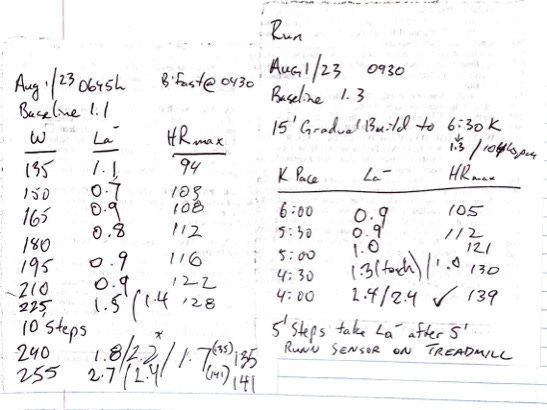 Aug 1/23 0645h B'fast@ 0430
Baseline 1.1
W La⁻ HRmax
135 1.1 94
150 0.7 103
165 0.9 108
180 0.8 112
195 0.9 116
210 0.9 122
225 1.5 (1.4 128
10' Steps
240 1.8/2.2*/1.7 (135) 135
255 2.7/(2.4) (141) 141
Run
Aug 1/23 0930
Baseline 1.3
15' Gradual Build to 6:30 K
1.3 /
K Pace La⁻ HRmax
6:00 0.9 105
5:30 0.9 112
5:00 1.0 121
4:30 1.3 /1.0 130
4:00 2.4/2.4 ✓ 139
5' Steps take La⁻ after 5'
RUNN SENSOR ON TREADMILL